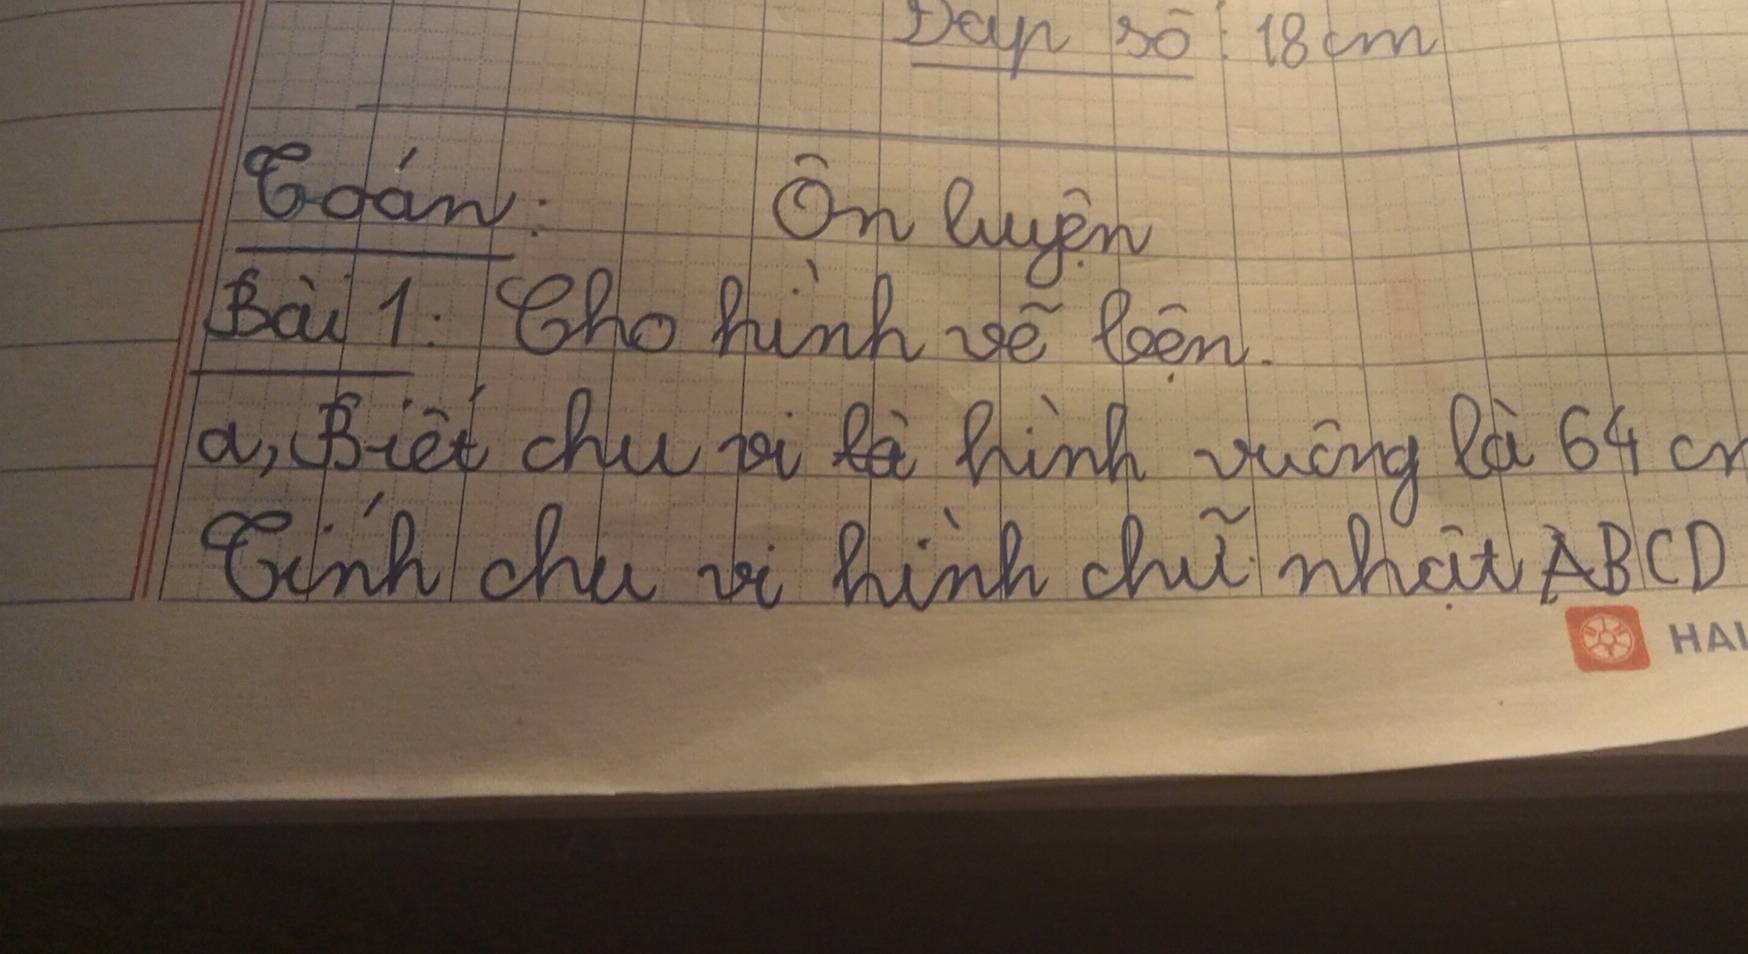 Đáp số: 18 cm
Toán: Ôn luyện
Bài 1: Cho hình vẽ bên.
a, Biết chu vi hình vuông là 64 cm
Tính chu vi hình chữ nhật ABCD
HAI